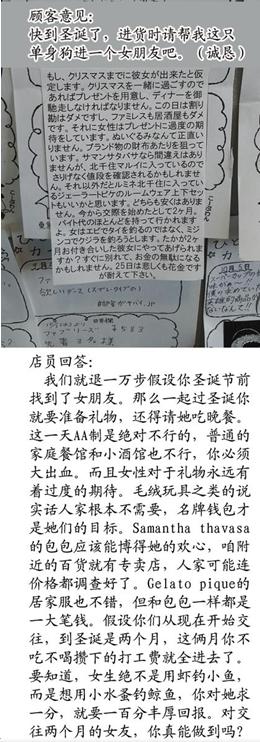 顾客意见:
快到圣诞了，进货时请帮我这只
单身狗进一个女朋友吧。（诚恳）
もし、クリスマスまでに彼女が出来たと仮
定します。クリスマスを一緒に過ごすので
あればプレゼントを用意し、ディナーを御
馳走しなければなりません。この日は割り
勘はダメですし、ファミレスも居酒屋もダメ
です。それに女性はプレゼントに過度の期
待をしています。ぬいぐるみなんて正直い
りません。ブランド物の財布あたりを狙って
います。サマンサタバサなら間違えはあり
ませんが、北千住マルイに入っているので
さりげなく値段を確認されるかもしれませ
ん。それ以外だとルミネ北千住に入ってい
るジェラートピケのルームウェア上下セッ
トもいいかと思います。どちらも安くはあり
ません。今から交際を始めたとして2ヶ月。
バイト代のほとんどを持って行かれます
よ。女はエビでタイを釣るのではなく、ミジ
ンコでクジラを釣ろうとします。たかが2ヶ
月お付き合いした彼女にやってあげられま
すか？すぐに別れて、お金の無駄になる
かもしれません。25日は悲しくも花金です
が耐えて下さい。
店员回答:
我们就退一万步假设你圣诞节前
找到了女朋友。那么一起过圣诞你
就要准备礼物，还得请她吃晚餐。
这一天AA制是绝对不行的，普通的
家庭餐馆和小酒馆也不行，你必须
大出血。而且女性对于礼物永远有
着过度的期待。毛绒玩具之类的说
实话人家根本不需要，名牌钱包才
是她们的目标。Samantha thavasa
的包包应该能博得她的欢心，咱附
近的百货就有专卖店，人家可能连
价格都调查好了。Gelato pique的
居家服也不错，但和包包一样都是
一大笔钱。假设你们从现在开始交
往，到圣诞是两个月，这俩月你不
吃不喝攒下的打工费就全进去了。
要知道，女生绝不是用虾钓小鱼，
而是想用小水蚤钓鲸鱼，你对她求
一分，就要一百分丰厚回报。对交
往两个月的女友，你真能做到吗？